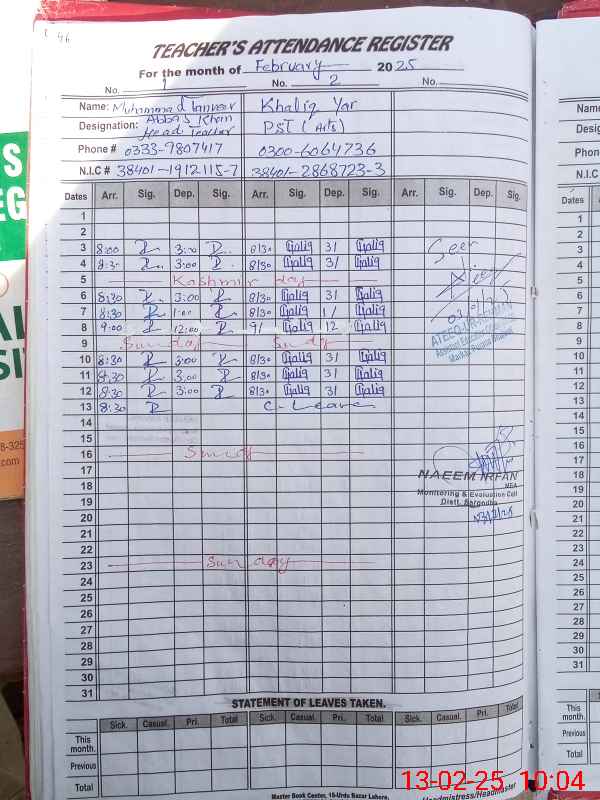 46
TEACHER'S ATTENDANCE REGISTER
For the month of February 2025
No. 1 No. 2 No.
Name: Muhammad Tanveer Khaliq Yar
Designation: Abbas Khan
Head Teacher PST (Arts)
Phone # 0333-9807417 0300-6064736
N.I.C # 38401-1912115-7 38401-2868723-3
Dates Arr. Sig. Dep. Sig. Arr. Sig. Dep. Sig. Arr. Sig. Dep. Sig.
1
2
3 8:00 3:00 8/30 3/ Seen
4 8:30 3:00 8/30 3/
5 Kashmir day
6 8:30 3:00 8/30 3/
7 8:30 1:00 8/30 1/
8 9:00 12:00 9/ 12
9 Sunday Sunday
10 8:30 3:00 8/30 3/
11 8:30 3:00 8/30 3/
12 8:30 3:00 8/30 3/
13 8:30 C-Leave
14
15
16 Sunday
17 NAEEM IRFAN
MEA
18 Monitoring & Evaluation Cell
Distt. Sargodha
19
20
21
22
23 Sunday
24
25
26
27
28
29
30
31
STATEMENT OF LEAVES TAKEN.
Sick. Casual. Pri. Total Sick. Casual. Pri. Total Sick. Casual. Pri. Total
This month.
Previous
Total
Master Book Center, 18-Urdu Bazar Lahore.
Headmistress/Headmaster
13-02-25 10:04